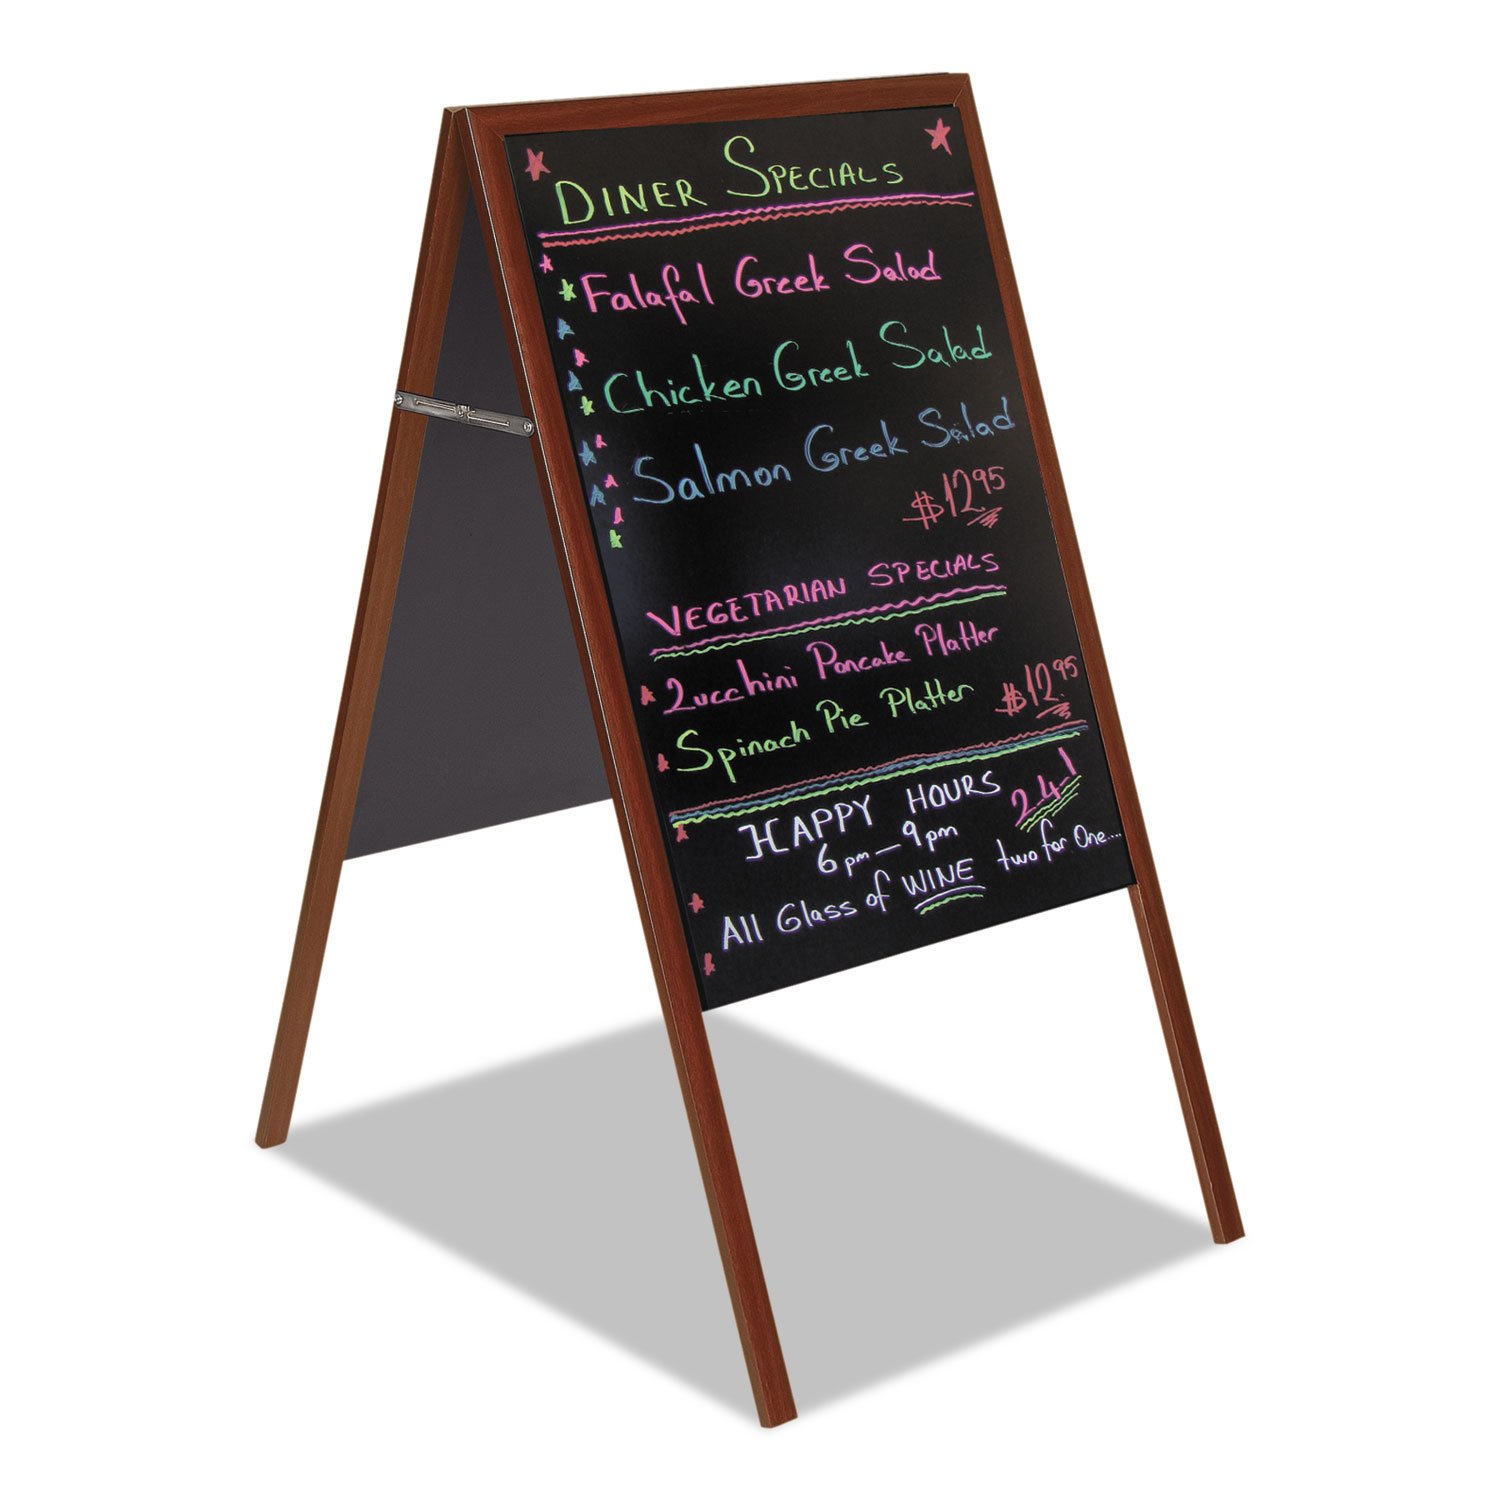 DINER SPECIALS
Falafal Greek Salad
Chicken Greek Salad
Salmon Greek Salad
$12.95
VEGETARIAN SPECIALS
Zucchini Pancake Platter
Spinach Pie Platter $12.95
HAPPY HOURS 2-4-1
6pm - 9pm
All Glass of WINE two for One....